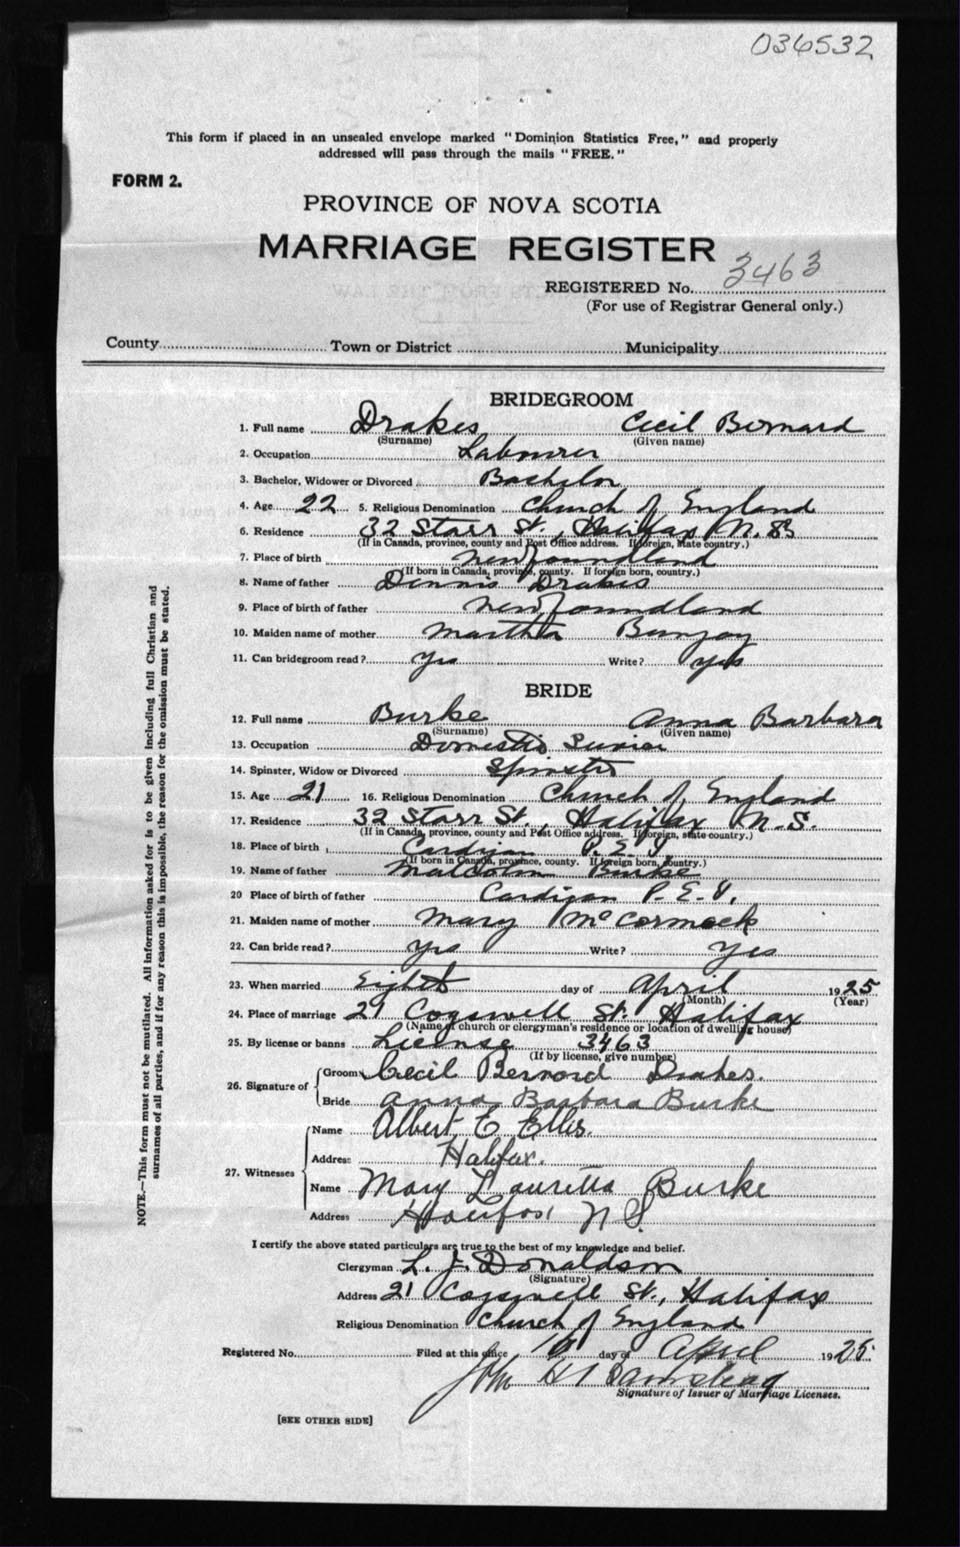 036532
This form if placed in an unsealed envelope marked "Dominion Statistics Free," and properly
addressed will pass through the mails "FREE."
FORM 2.
PROVINCE OF NOVA SCOTIA
MARRIAGE REGISTER
REGISTERED No. 3463
(For use of Registrar General only.)
County Town or District Municipality
BRIDEGROOM
1. Full name Drakes Cecil Bernard
(Surname) (Given name)
2. Occupation Labourer
3. Bachelor, Widower or Divorced Bachelor
4. Age 22 5. Religious Denomination Church of England
6. Residence 32 Starr St., Halifax N.S.
(If in Canada, province, county and Post Office address. If foreign, state country.)
7. Place of birth Newfoundland
(If born in Canada, province, county. If foreign born, country.)
8. Name of father Dennis Drakes
9. Place of birth of father Newfoundland
10. Maiden name of mother Martha
11. Can bridegroom read? Yes Write? yes
BRIDE
12. Full name Burke Anna Barbara
(Surname) (Given name)
13. Occupation Domestic
14. Spinster, Widow or Divorced Spinster
15. Age 21 16. Religious Denomination Church of England
17. Residence 32 Starr St., Halifax N.S.
(If in Canada, province, county and Post Office address. If foreign, state country.)
18. Place of birth Cardigan P.E.I
(If born in Canada, province, county. If foreign born, country.)
19. Name of father Malcolm Burke
20 Place of birth of father Cardigan P.E.I.
21. Maiden name of mother Mary McCormack
22. Can bride read? Yes Write? Yes
23. When married Eighth day of April 1925
(Month) (Year)
24. Place of marriage 21 Cogswell St. Halifax
(Name of church or clergyman's residence or location of dwelling house)
25. By license or banns License 3463
(If by license, give number)
26. Signature of Groom Cecil Bernord Drakes.
Bride Anna Barbara Burke
27. Witnesses Name Albert E Ellis.
Address Halifax.
Name Mary Lauretta Burke
Address Halifax N S.
I certify the above stated particulars are true to the best of my knowledge and belief.
Clergyman L. J. Donaldson
(Signature)
Address 21 Cogswell St., Halifax
Religious Denomination Church of England
Registered No. Filed at this office day of April 1925
John
Signature of Issuer of Marriage Licenses.
[SEE OTHER SIDE]
NOTE.—This form must not be mutilated. All information asked for is to be given including full Christian and
surnames of all parties, and if for any reason this is impossible, the reason for the omission must be stated.